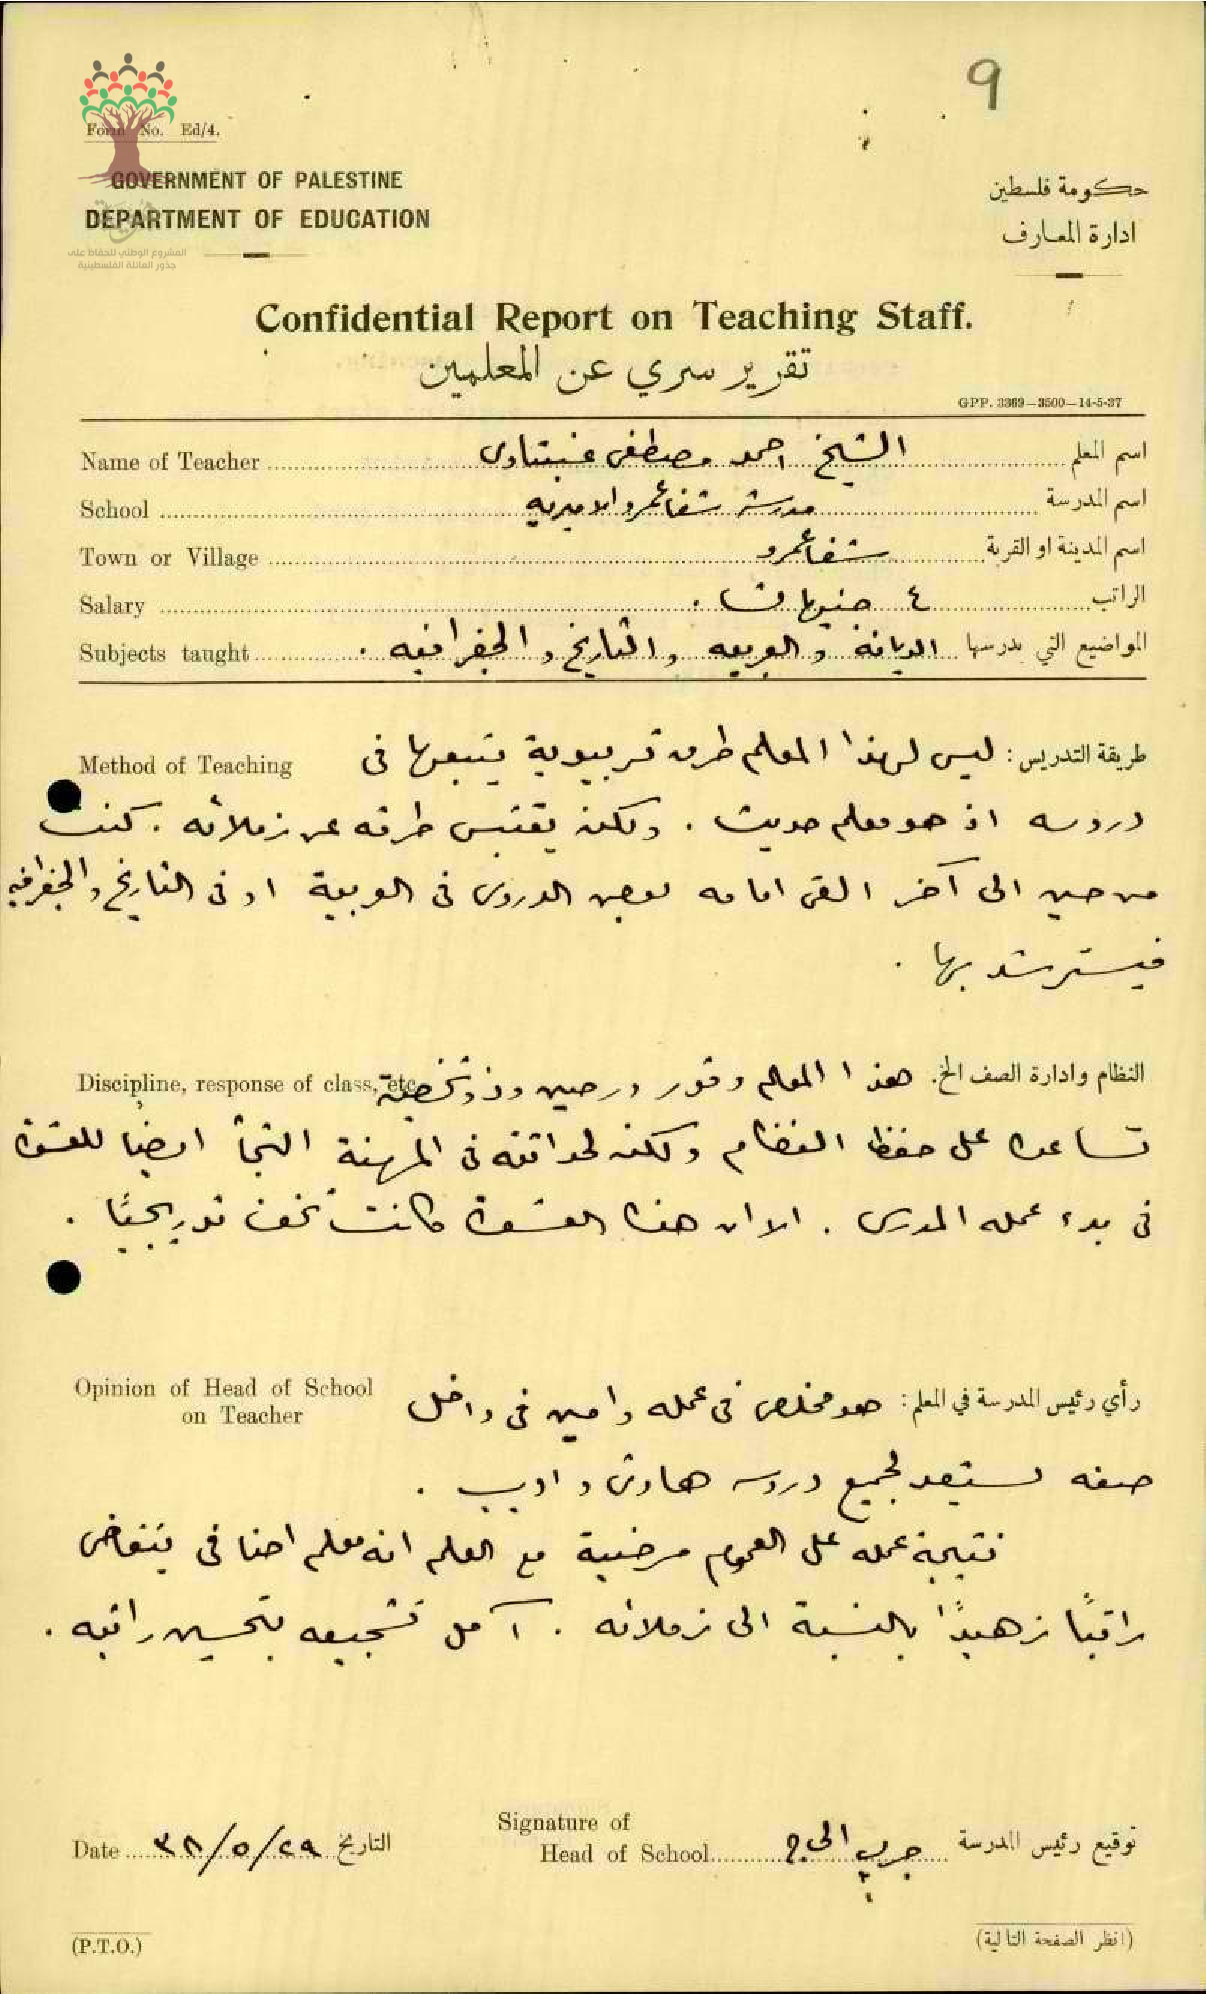 9
Form No. Ed/4.
GOVERNMENT OF PALESTINE
حكومة فلسطين
DEPARTMENT OF EDUCATION
ادارة المعارف
هوية
المشروع الوطني للحفاظ على
جذور العائلة الفلسطينية
Confidential Report on Teaching Staff.
تقرير سري عن المعلمين
GPP. 3369—3500—14-5-37
Name of Teacher الشيخ احمد مصطفى عنبتاوي اسم المعلم
School مدرسة شفاعمرو الاميرية اسم المدرسة
Town or Village شفاعمرو اسم المدينة او القرية
Salary ٤ جنيهات الراتب
Subjects taught الديانة والعربيه والتاريخ والجغرافيه . المواضيع التي يدرسها
Method of Teaching طريقة التدريس : ليس لهذا المعلم طرق تربيوية يتبعها في
دروسه اذ هو معلم حديث . ولكنه يقتبس طرقه عن زملائه . كنت
من حين الى آخر القي امامه بعض الدروس في العربية او في التاريخ والجغرافيه
فيسترشد بها .
Discipline, response of class, etc. النظام وادارة الصف الخ. هذا المعلم وقور ورصين وذو شخصية
تساعده على حفظ النظام ولكنه لحداثته في المهنة التجأ ايضًا للقسوة
في بدء عمله المدرسي . الا ان هذه القسوة كانت تخف تدريجيًا .
Opinion of Head of School رأي رئيس المدرسة في المعلم : هو مخلص في عمله وامين في داخل
on Teacher
صفه يستعد لجميع دروسه هادئ واديب .
نتيجة عمله على العموم مرضية مع العلم انه معلم اضافي يتقاضى
راتبًا زهيدًا بالنسبة الى زملائه . آمل تشجيعه بتحسين راتبه .
Date ٢٩/٥/٣٨ التاريخ
Signature of
Head of School توقيع رئيس المدرسة
(P.T.O.)
(انظر الصفحة التالية)